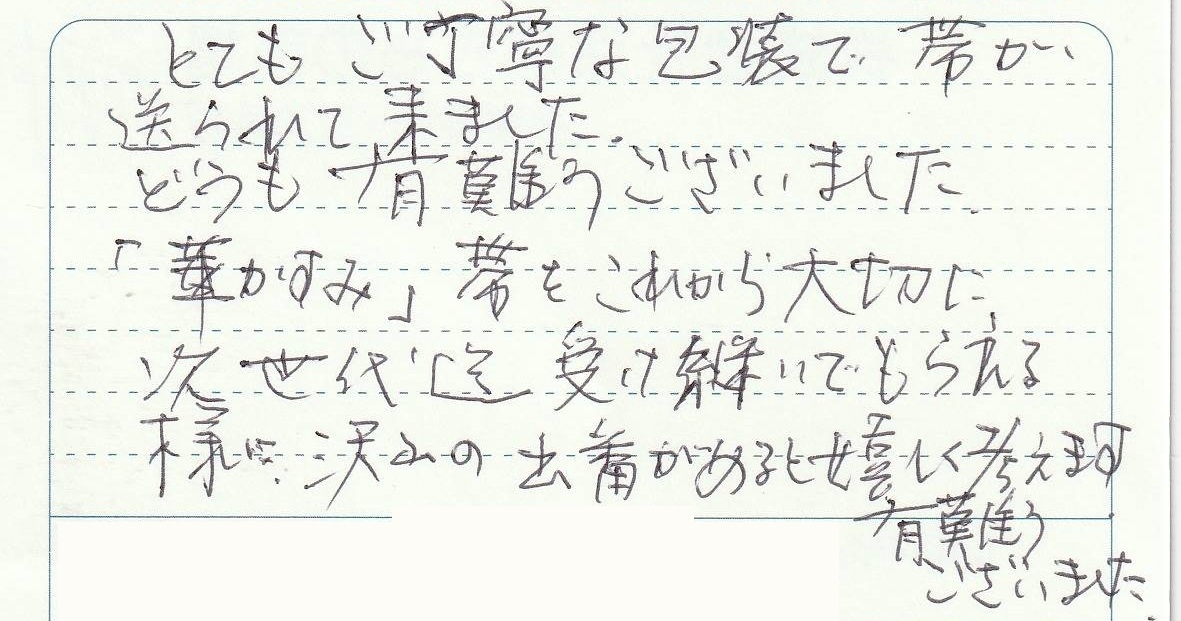 とてもご丁寧な包装で帯が
送られて来ました.
どうも有難うございました.
「華かすみ」帯をこれから大切に,
次世代迄受け継いでもらえる
様に.沢山の出番があると嬉しく考えます
有難う
ございました.